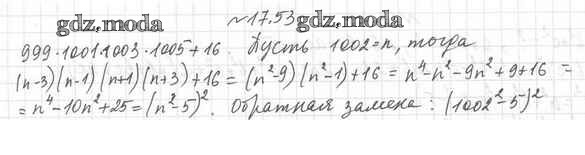 №17.53
gdz.moda gdz.moda
999·1001·1003·1005+16. Пусть 1002=n, тогда
(n-3)(n-1)(n+1)(n+3)+16=(n²-9)(n²-1)+16=n⁴-n²-9n²+9+16=
=n⁴-10n²+25=(n²-5)². Обратная замена: (1002²-5)²